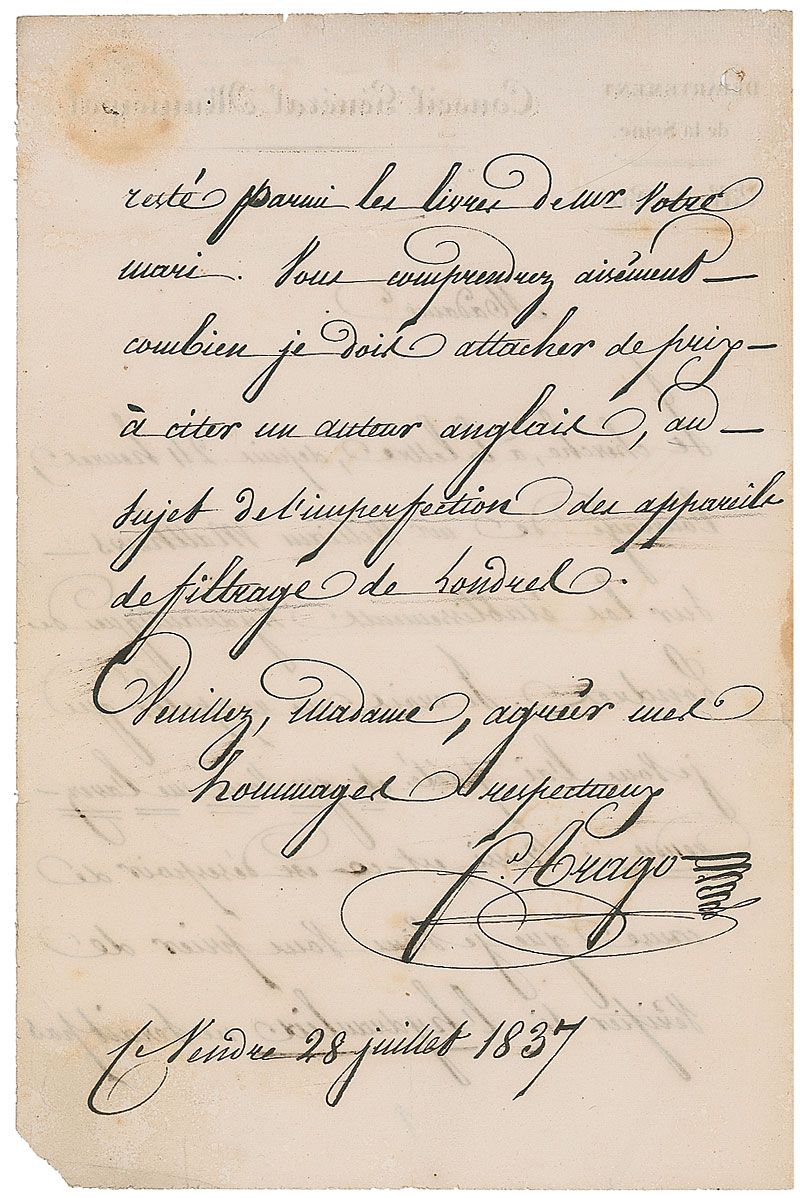 resté parmi les livres de mr votre
mari. Vous comprendrez aisément —
combien je dois attacher de prix —
à citer un auteur anglais, au —
sujet de l'imperfection des appareils
de filtrage de Londres.
Veuillez, Madame, agréer mes
hommages respectueux
f. Arago
Vendre 28 juillet 1837